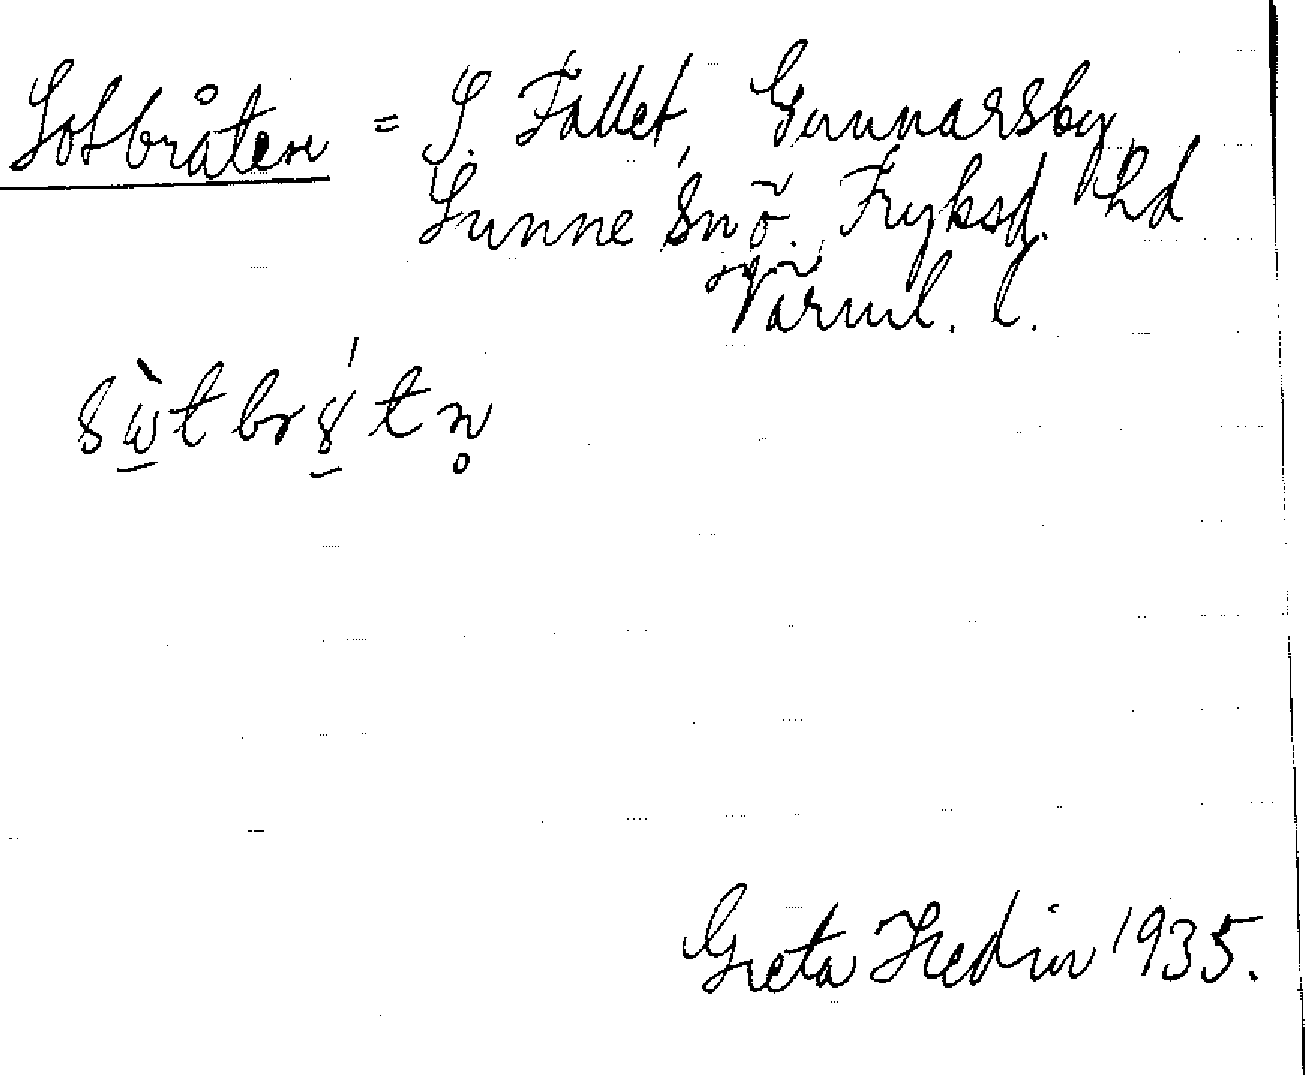 Sotbråten = S. Fallet, Gunnarsby,
Sunne sn Ö. Fryksd. hd
Värml. l.
Greta Hedin 1935.